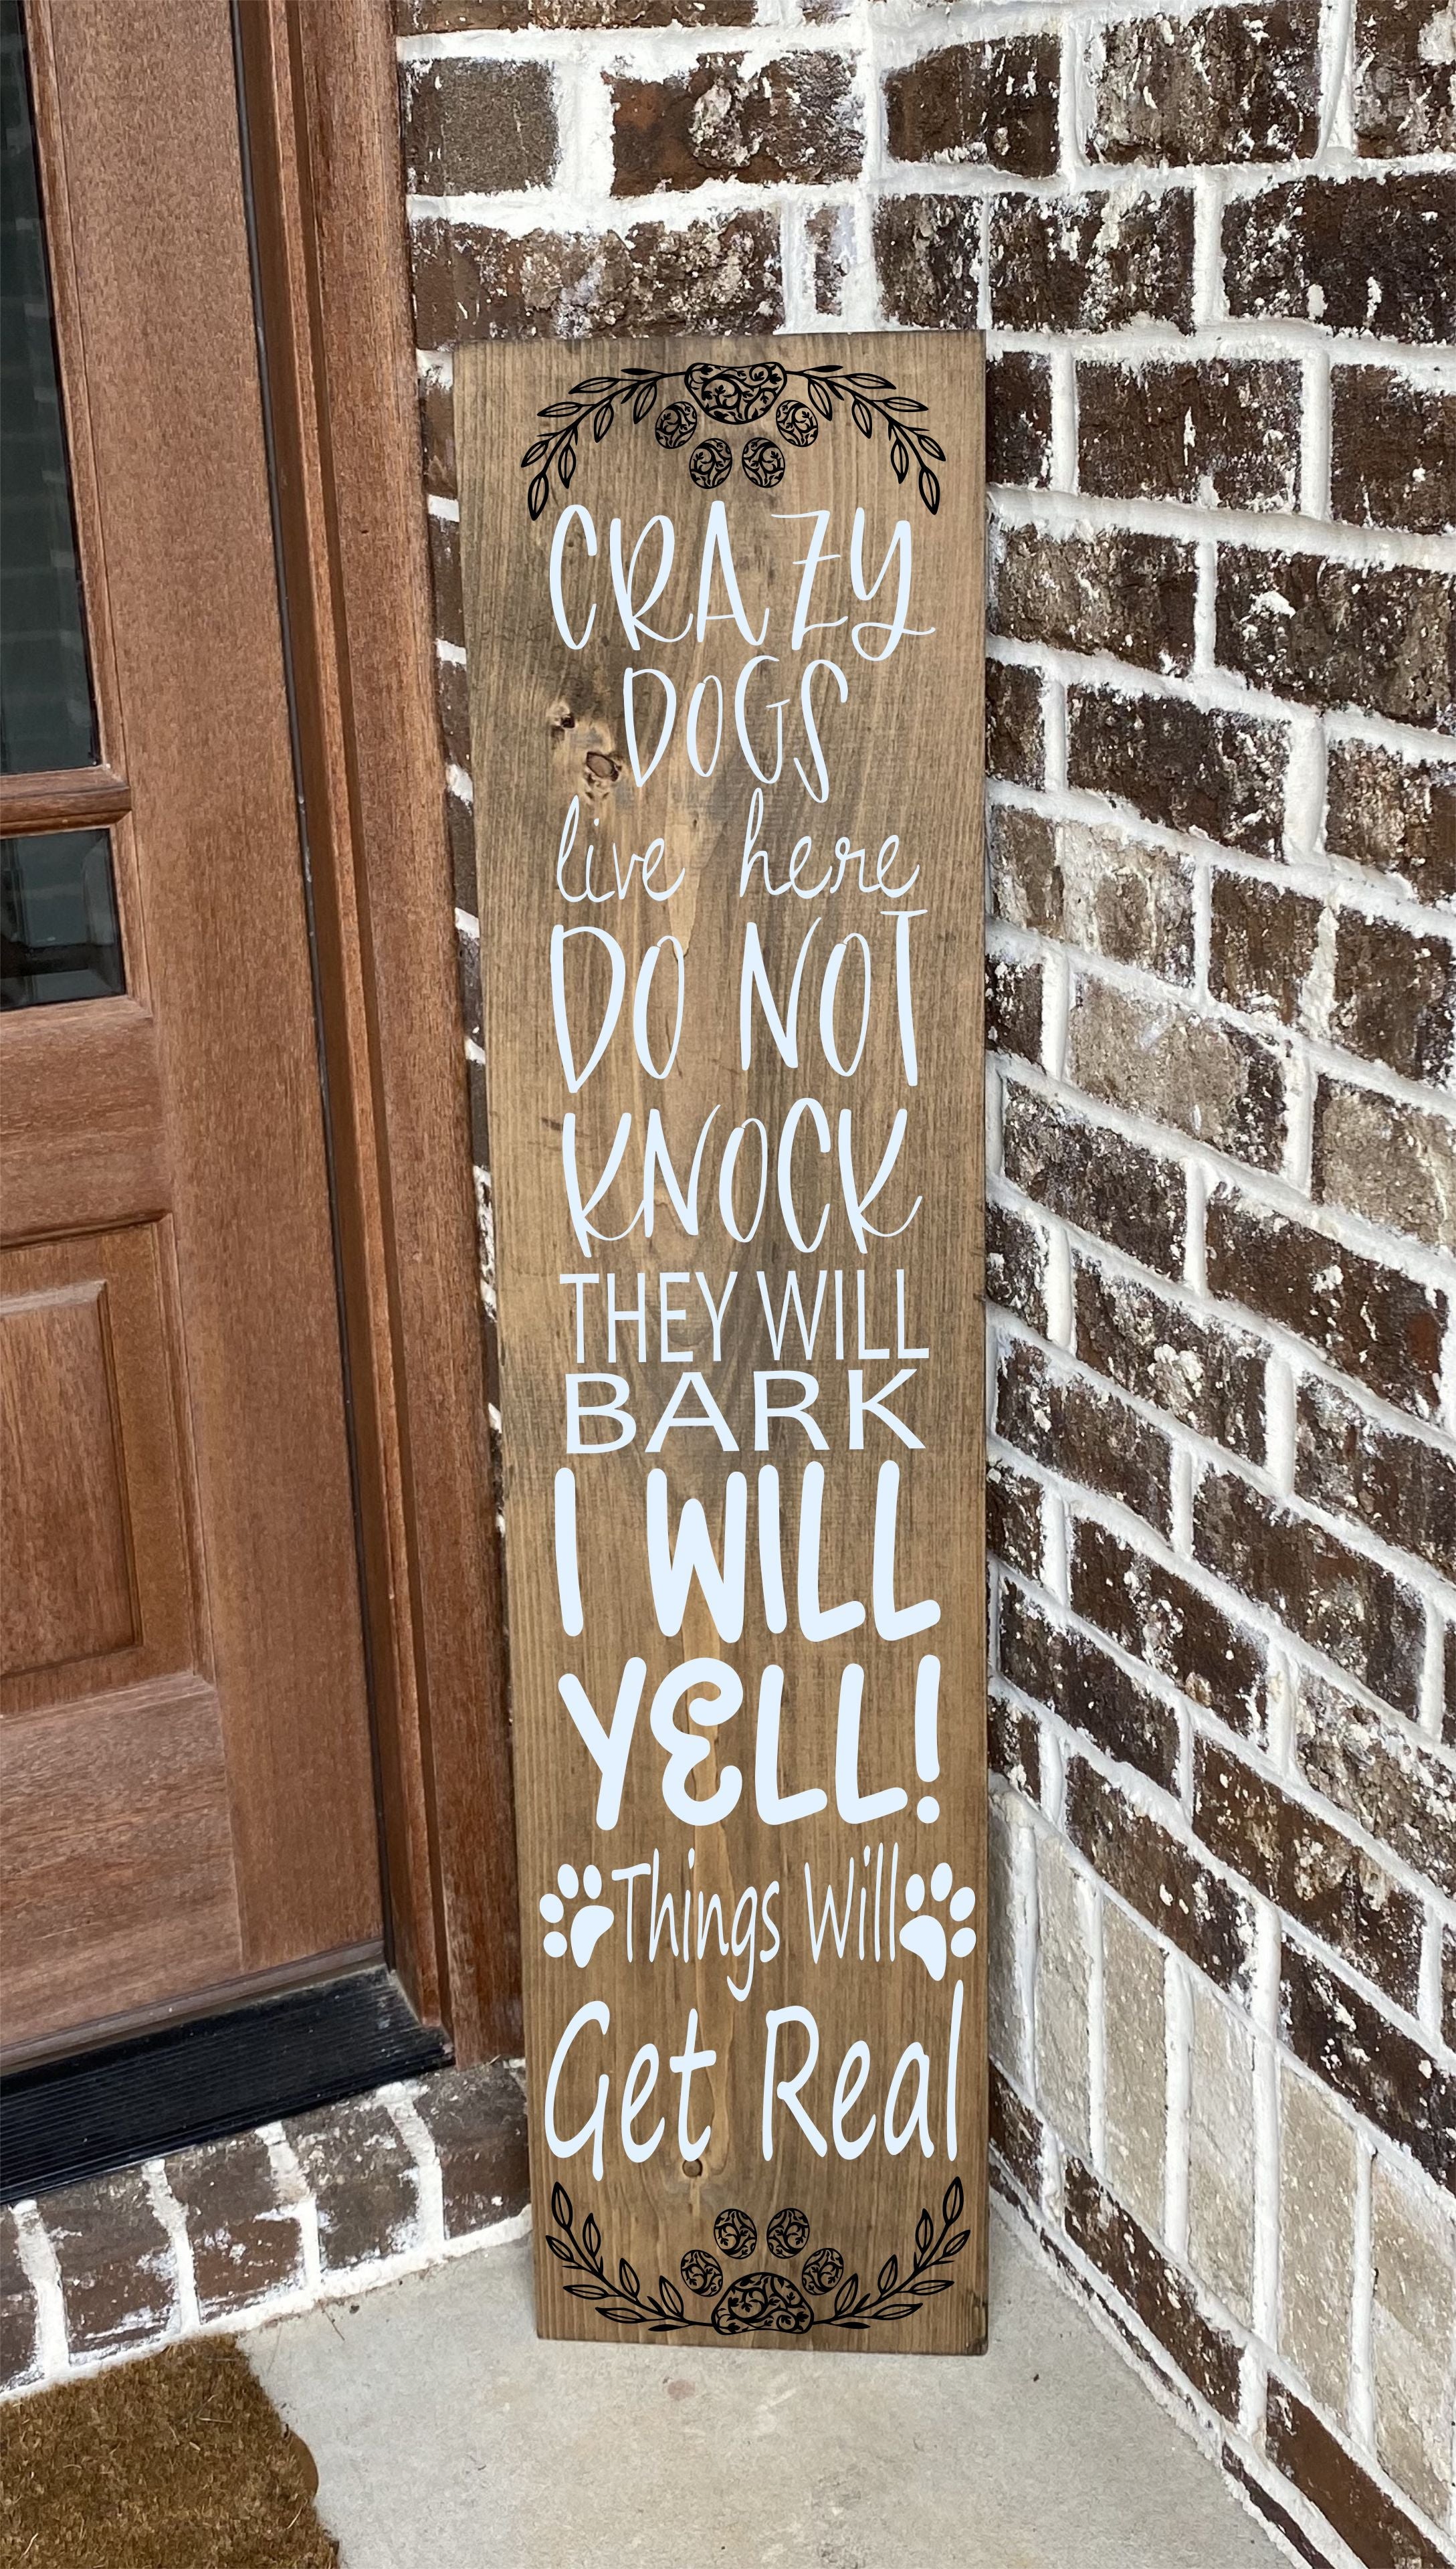 CRAZY
DOGS
live here
DO NOT
KNOCK
THEY WILL
BARK
I WILL
YELL!
Things Will
Get Real